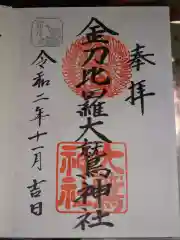 奉拝
金刀比羅大鷲神社
令和二年十一月吉日
大鷲
神社